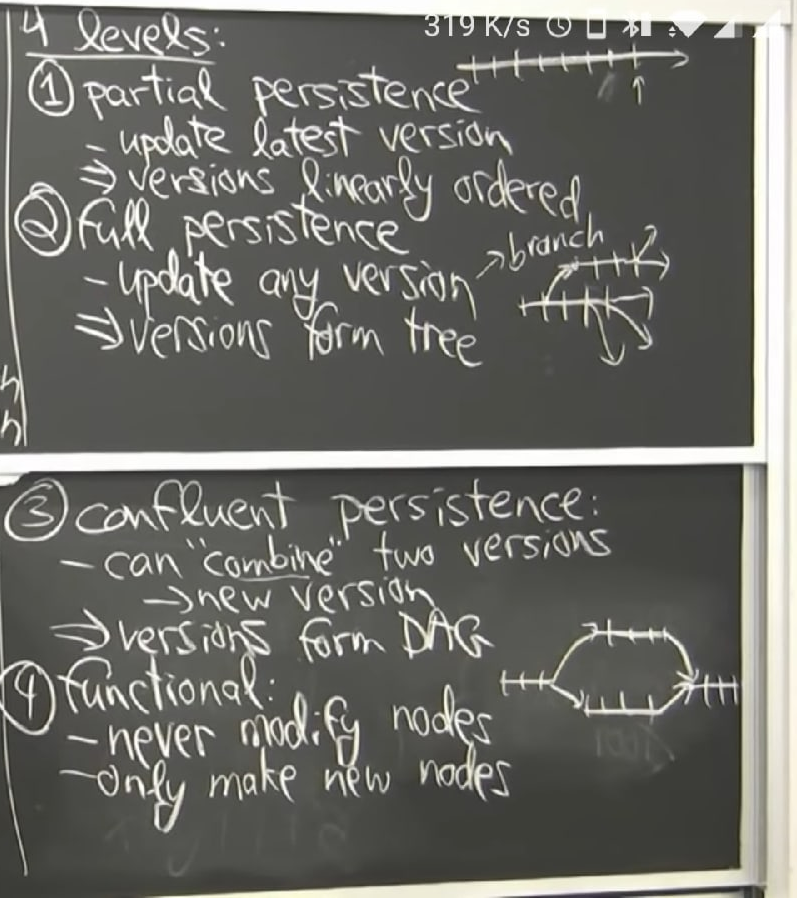 319 K/s
4 levels:
① partial persistence
- update latest version
⇒ versions linearly ordered
② full persistence
- update any version
→ branch
⇒ versions form tree
③ confluent persistence:
- can "combine" two versions
→ new version
⇒ versions form DAG
④ functional:
- never modify nodes
- only make new nodes